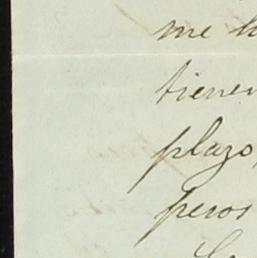 me h
tienen
plazo,
pesos